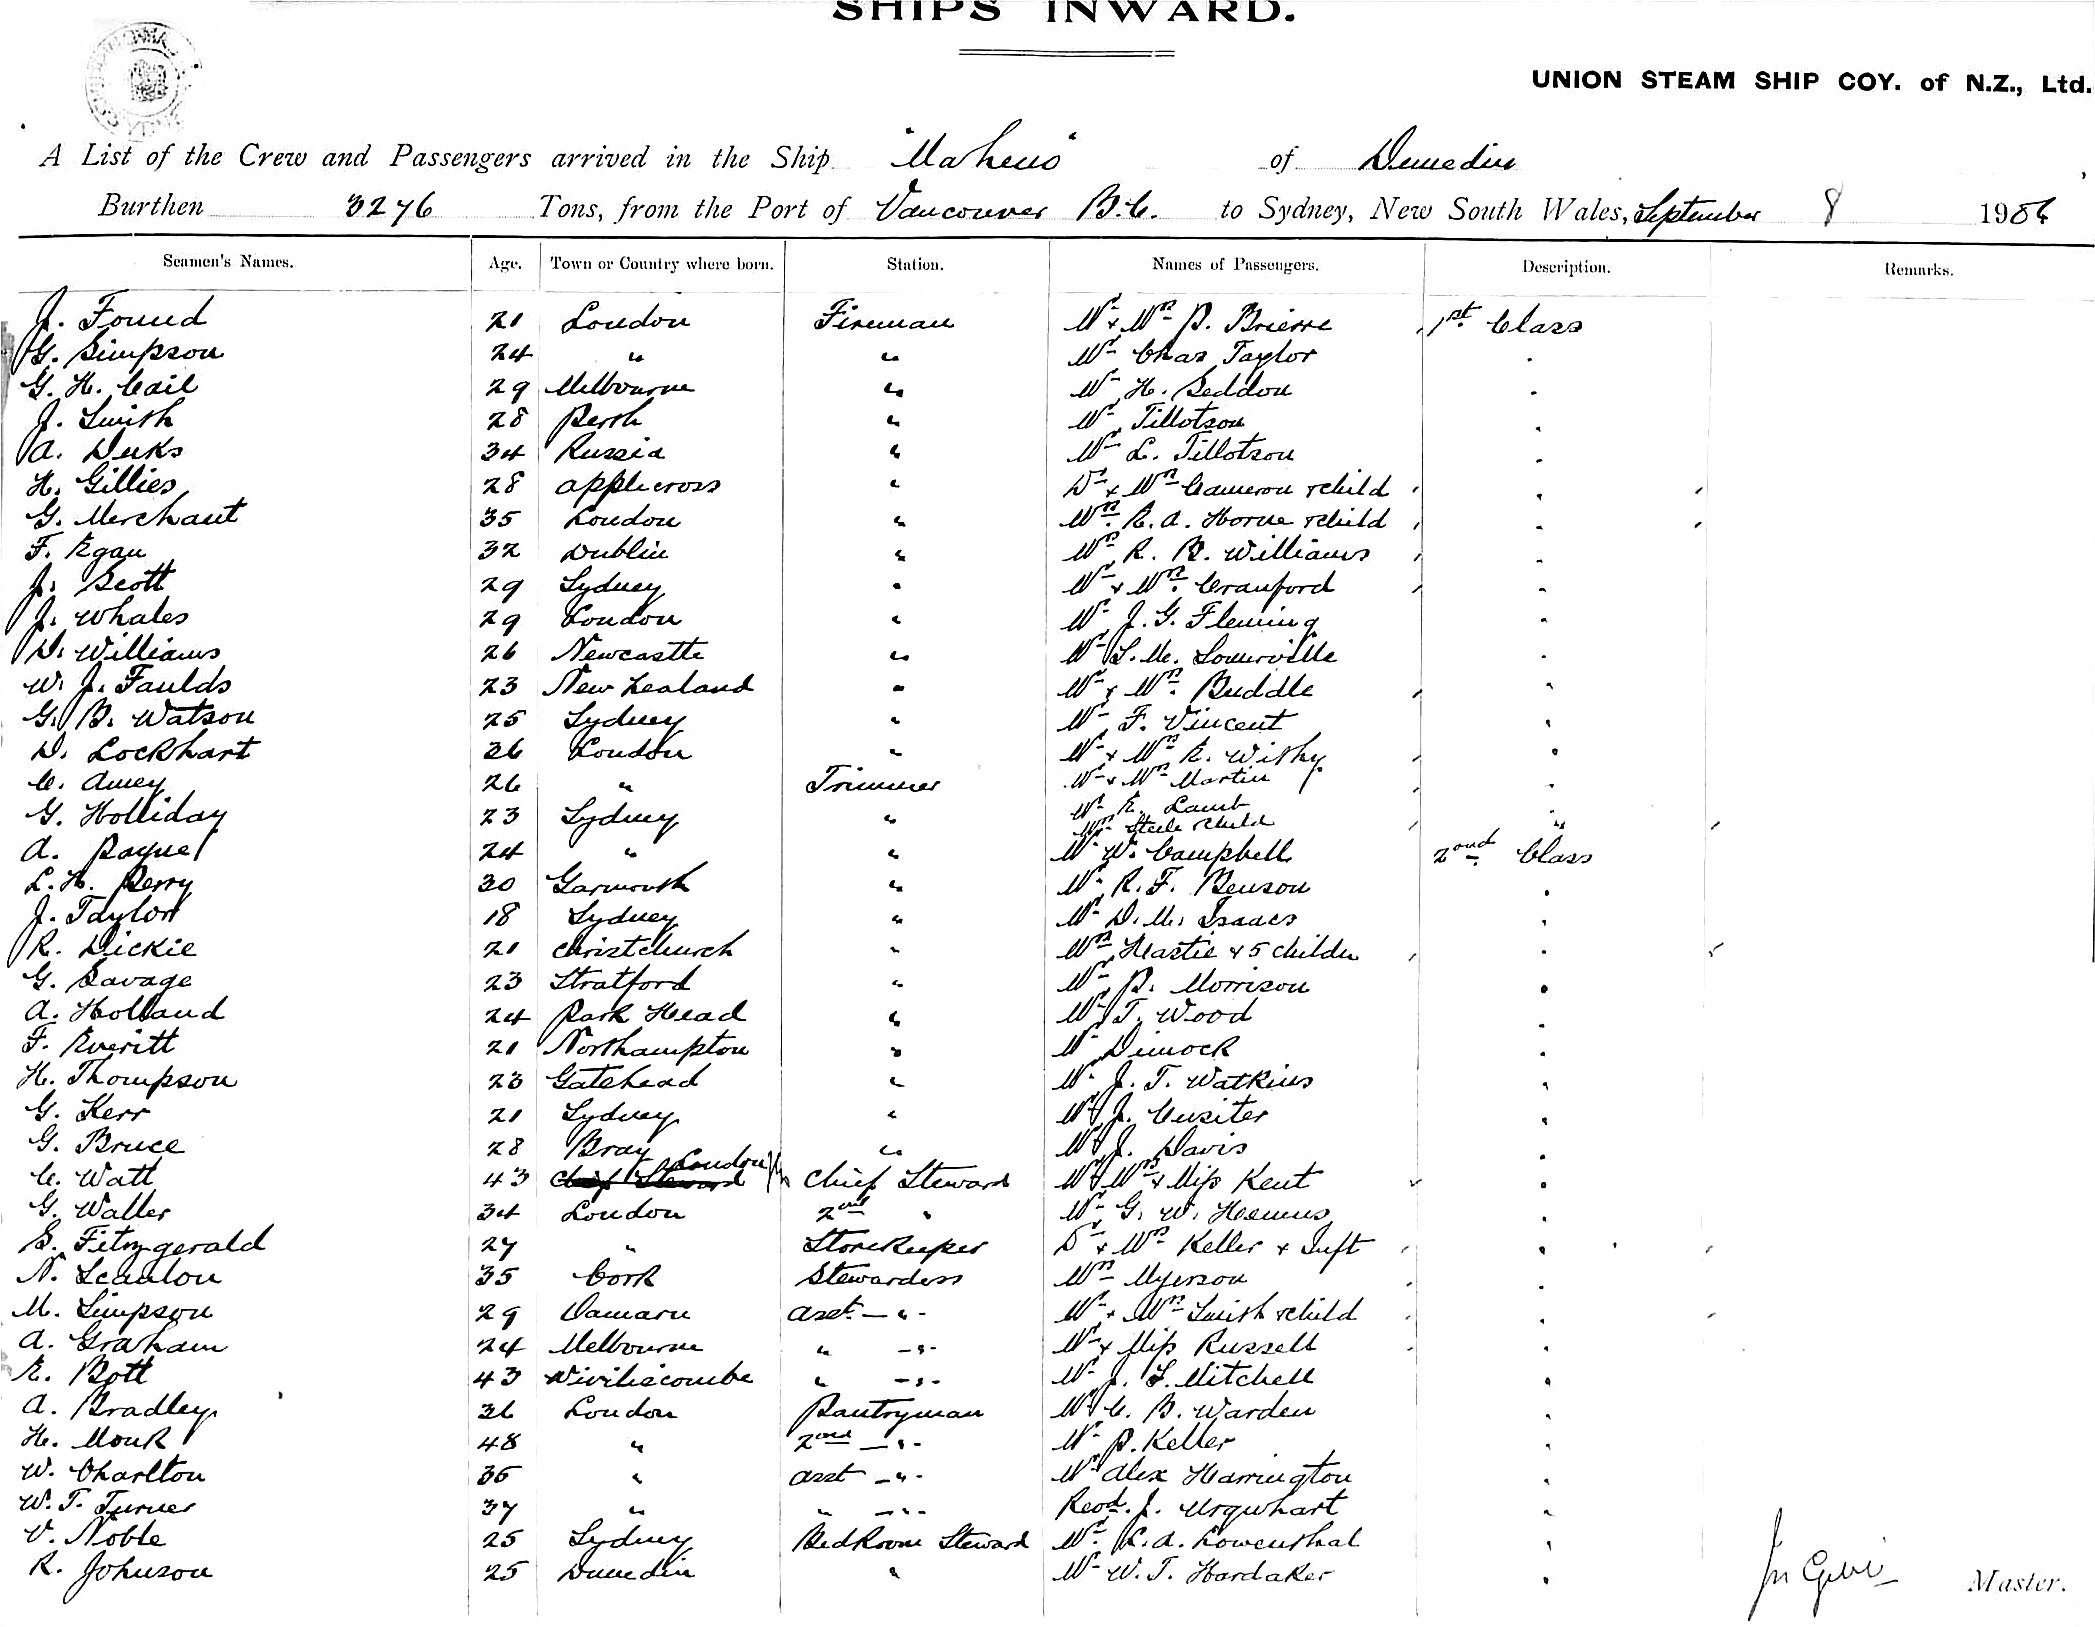 SHIPS INWARD.
UNION STEAM SHIP COY. of N.Z., Ltd.
A List of the Crew and Passengers arrived in the Ship "Maheno" of Dunedin
Burthen 3276 Tons, from the Port of Vancouver B.C. to Sydney, New South Wales, September 8 1906
Seamen's Names. Age. Town or Country where born. Station. Names of Passengers. Description. Remarks.
J. Found 21 London Fireman Mr & Mrs P. Brierre 1st Class
G. Simpson 24 " " Mr Chas Taylor "
G. H. Cail 29 Melbourne " Mr H. Seddon "
J. Smith 28 Perth " Mr Tillotson "
A. Duks 34 Russia " Mr L. Tillotson "
H. Gillies 28 Applecross " Dr & Mrs Cameron & child "
G. Merchant 35 London " Mrs R. A. Horne & child "
F. Egan 32 Dublin " Mrs R. B. Williams "
J. Scott 29 Sydney " Mr & Mrs Cranford "
J. Whales 29 London " Mr J. G. Fleming "
D. Williams 26 Newcastle " Mr S. M. Somerville "
W. J. Faulds 23 New Zealand " Mr & Mrs Buddle "
G. B. Watson 25 Sydney " Mr F. Vincent "
D. Lockhart 26 London " Mr & Mrs E. Withy "
C. Amey 26 " Trimmer Mr & Mrs Martin "
G. Holliday 23 Sydney " Mr E. Lamb "
Mrs Steele & child "
A. Payne 24 " " Mr W. Campbell 2ond Class
L. H. Perry 30 Garmouth " Mr R. F. Benson "
J. Taylor 18 Sydney " Mr D. M. Isaacs "
R. Dickie 21 Christchurch " Mrs Hastie & 5 childn " 5
G. Savage 23 Stratford " Mr P. Morrison "
A. Holland 24 Park Head " Mr T. Wood "
F. Everitt 21 Northampton " Mr Dimock "
H. Thompson 23 Gatehead " Mr J. T. Watkins "
G. Kerr 21 Sydney " Mr J. Cusiter "
G. Bruce 28 Bray " Mr J. Davis "
C. Watt 43 Chief Steward London Chief Steward Mr Mrs & Miss Kent "
G. Waller 34 London 2nd " Mr G. W. Hemus "
S. Fitzgerald 27 " Storekeeper Dr & Mrs Keller & Inft "
N. Scanlon 35 Cork Stewardess Mrs Myerson "
M. Simpson 29 Oamaru Asst - " - Mr & Mrs Smith & child "
A. Graham 24 Melbourne " - " - Mr & Miss Russell "
E. Bott 43 Wiviliscombe " - " - Mr J. S. Mitchell "
A. Bradley 36 London Pantryman Mr C. B. Warden "
H. Monk 48 " 2ond - " - Mr P. Keller "
W. Charlton 36 " Asst - " - Mr Alex Harrington "
W. T. Turner 37 " " - " - Revd. J. Urquhart "
V. Noble 25 Sydney BedRoom Steward Mr L. A. Lowenthal "
R. Johnson 25 Dunedin " Mr W. T. Hardaker "
Master.